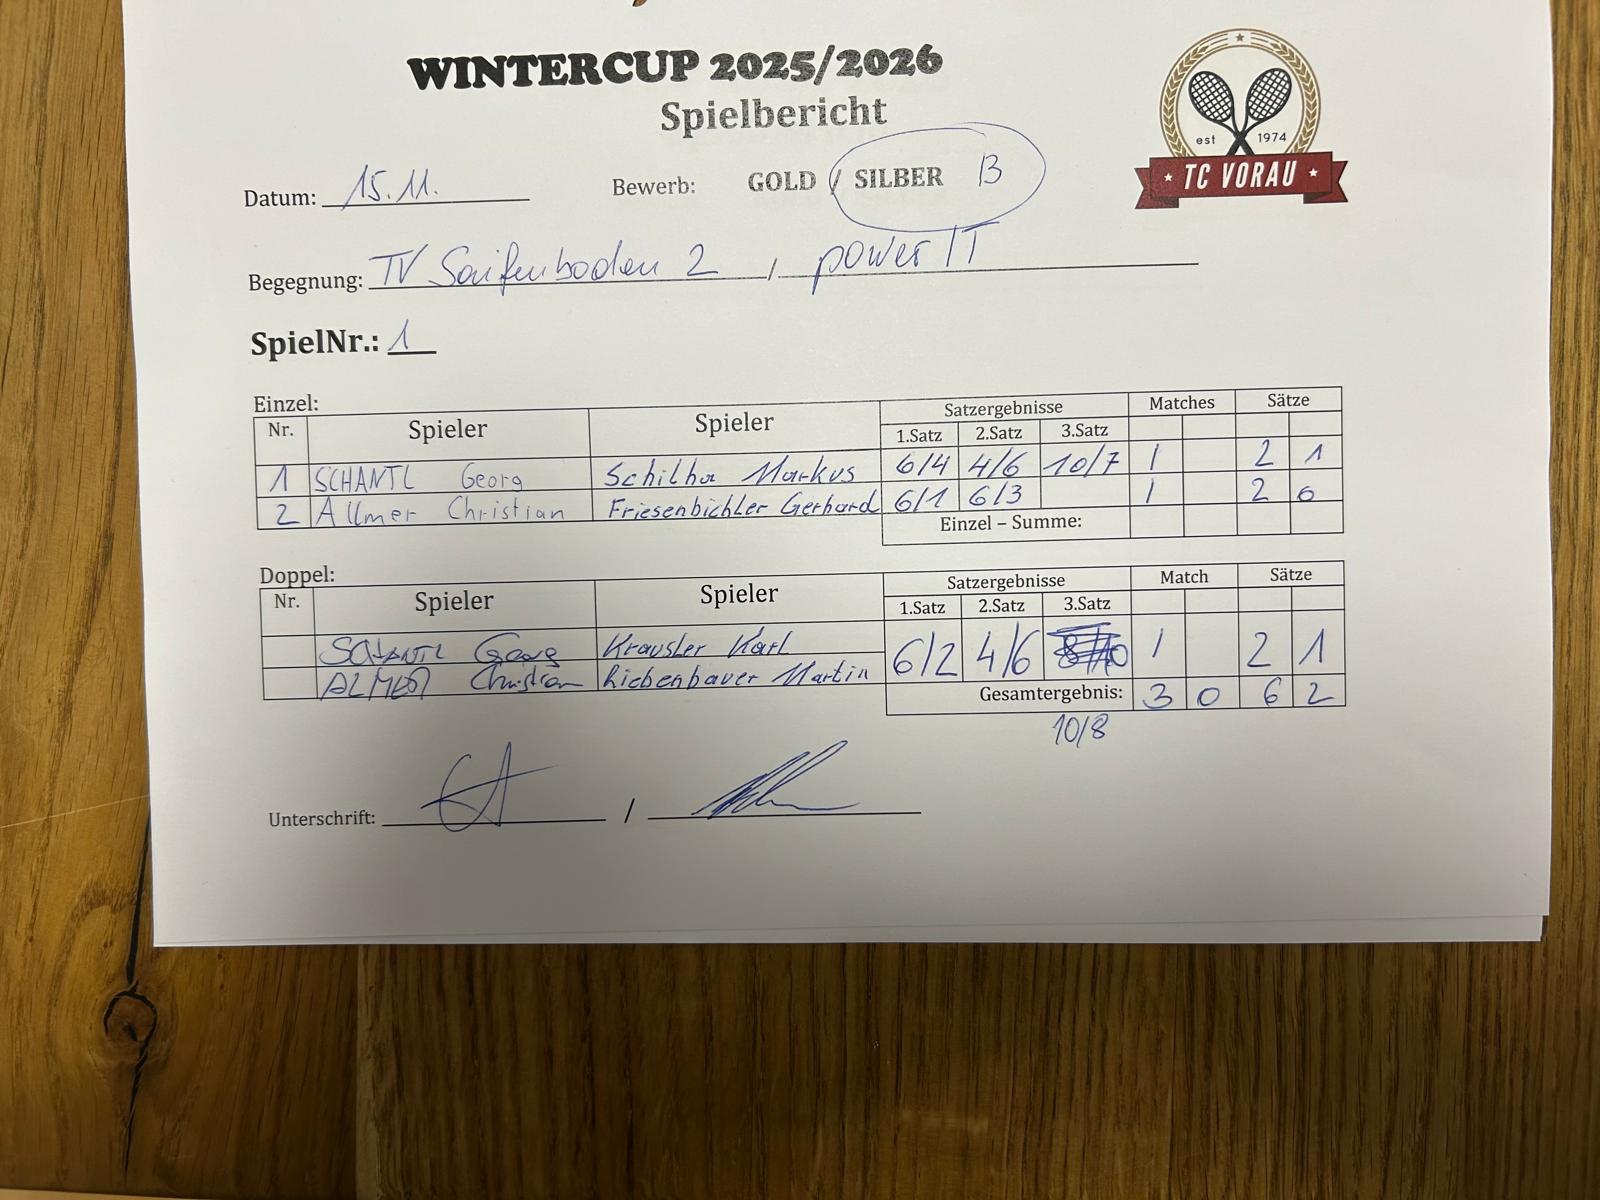 WINTERCUP 2025/2026
Spielbericht
est 1974
TC VORAU
Datum: 15.11. Bewerb: GOLD / SILBER B
Begegnung: TV Saifenboden 2 / power IT
SpielNr.: 1
Einzel:
Nr. Spieler Spieler Satzergebnisse Matches Sätze
1.Satz 2.Satz 3.Satz
1 SCHANTL Georg Schilha Markus 6/4 4/6 10/7 1 2 1
2 Allmer Christian Friesenbichler Gerhard 6/1 6/3 1 2 0
Einzel – Summe:
Doppel:
Nr. Spieler Spieler Satzergebnisse Match Sätze
1.Satz 2.Satz 3.Satz
SCHANTL Georg Krausler Karl 6/2 4/6 1 2 1
ALMER Christian Riebenbauer Martin
Gesamtergebnis: 3 0 6 2
10/8
Unterschrift: /